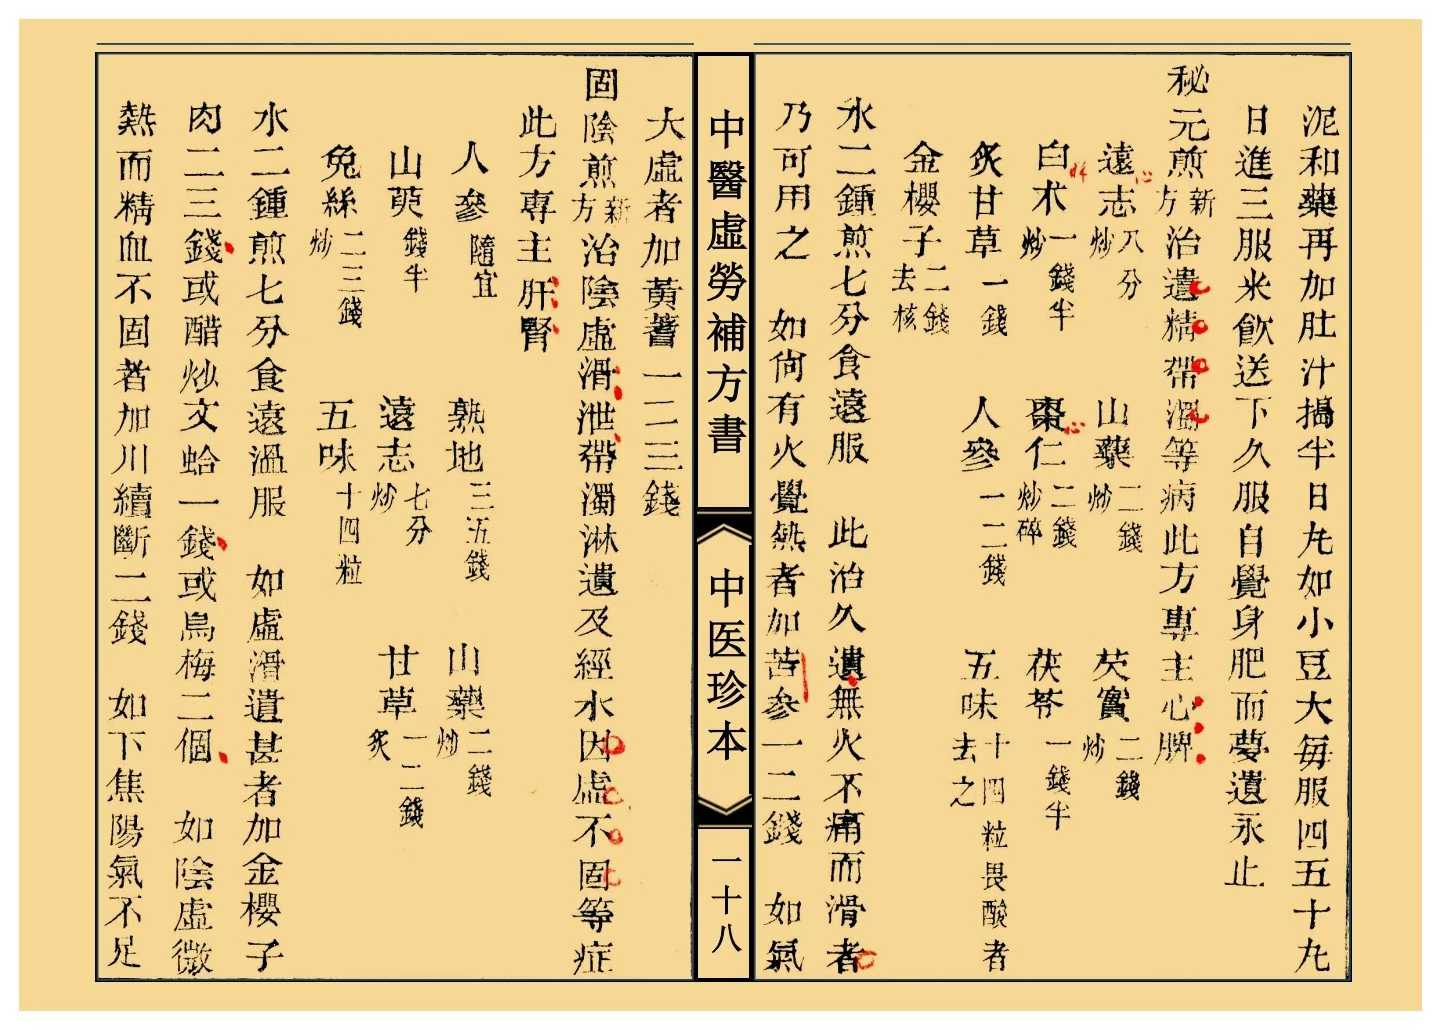 泥和藥再加肚汁搗半日丸如小豆大每服四五十丸
日進三服米飲送下久服自覺身肥而夢遺永止
秘元煎新方治遺精帶濁等病此方專主心脾
遠志八分炒 山藥二錢炒 芡實二錢炒
白朮一錢半炒 棗仁二錢炒碎 茯苓一錢半
炙甘草一錢 人參一二錢 五味十四粒畏酸者去之
金櫻子二錢去核
水二鍾煎七分食遠服 此治久遺無火不痛而滑者
乃可用之 如尚有火覺熱者加苦參一二錢 如氣
中醫虛勞補方書
中医珍本
一十八
大虛者加黃蓍一二三錢
固陰煎新方治陰虛滑泄帶濁淋遺及經水因虛不固等症
此方專主肝腎
人參隨宜 熟地三五錢 山藥二錢炒
山萸錢半 遠志七分炒 甘草一二錢炙
兔絲二三錢炒 五味十四粒
水二鍾煎七分食遠溫服 如虛滑遺甚者加金櫻子
肉二三錢或醋炒文蛤一錢或烏梅二個 如陰虛微
熱而精血不固者加川續斷二錢 如下焦陽氣不足